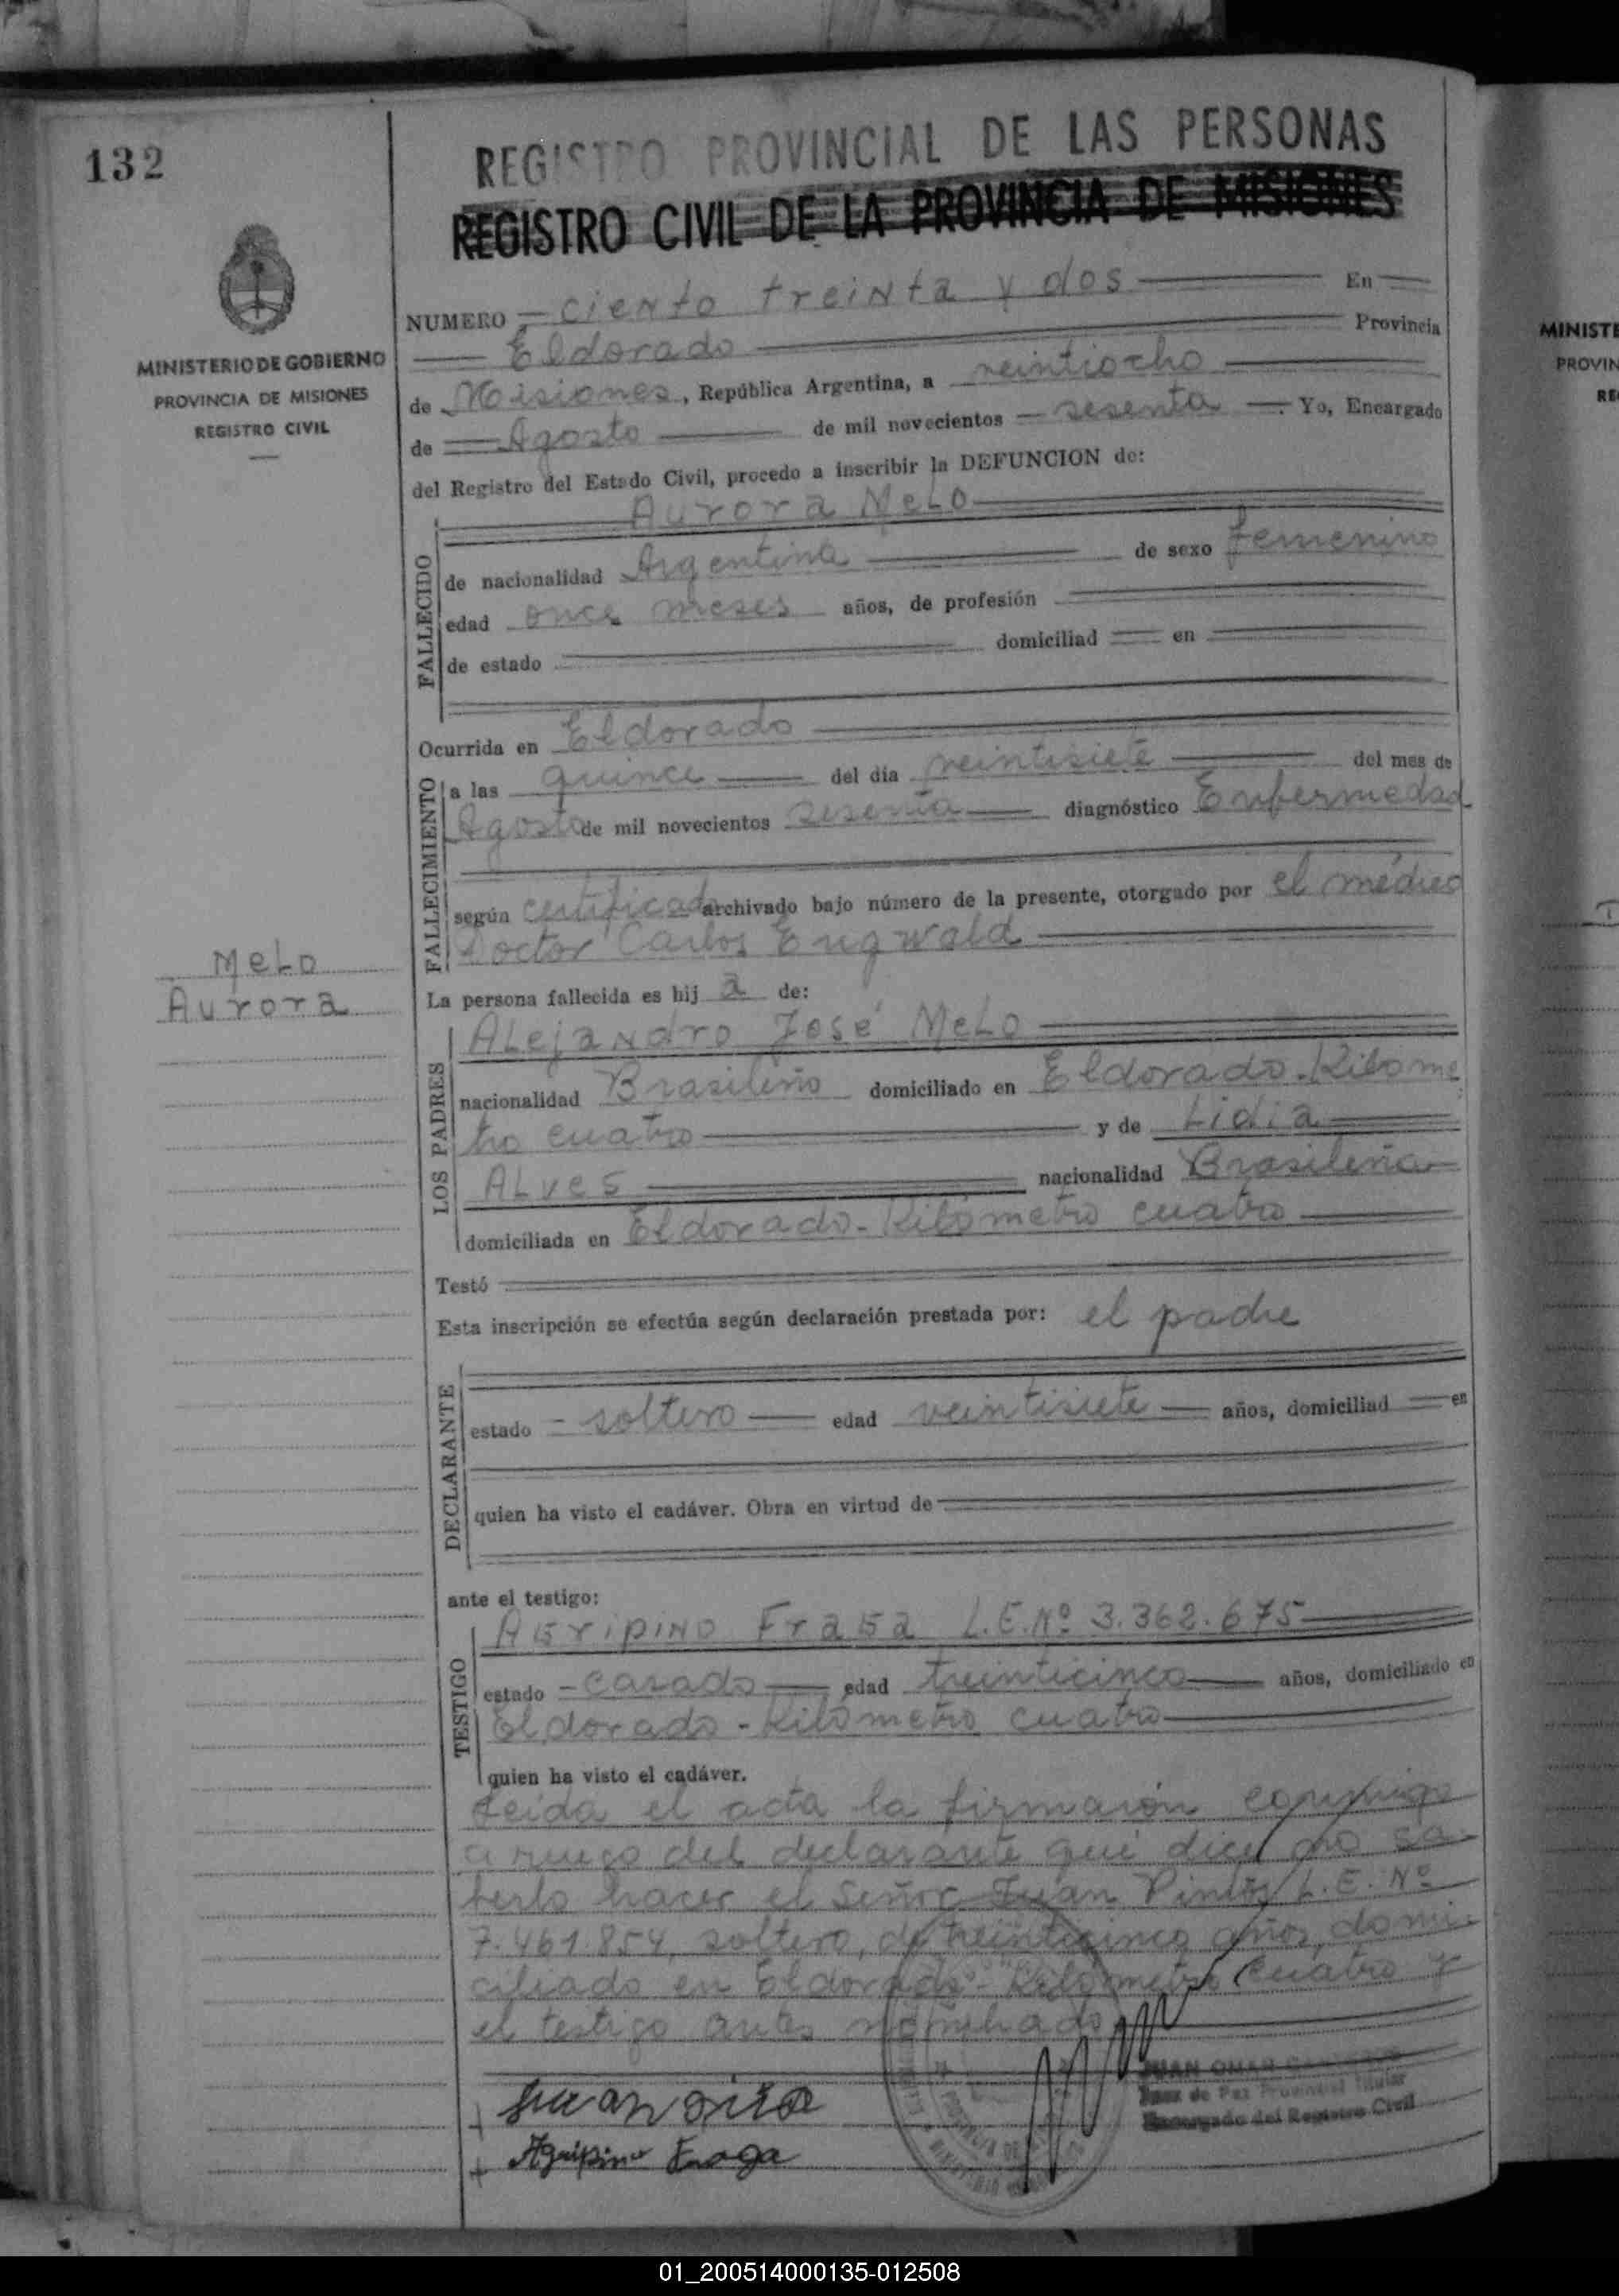 132
REGISTRO PROVINCIAL DE LAS PERSONAS
REGISTRO CIVIL DE LA PROVINCIA DE MISIONES
MINISTERIO DE GOBIERNO
PROVINCIA DE MISIONES
REGISTRO CIVIL
NUMERO ciento treinta y dos En
Eldorado Provincia
de Misiones, República Argentina, a veintiocho
de Agosto de mil novecientos sesenta. Yo, Encargado
del Registro del Estado Civil, procedo a inscribir la DEFUNCION de:
Aurora Melo
FALLECIDO
de nacionalidad Argentina de sexo femenino
edad once meses años, de profesión
de estado domiciliad en
Ocurrida en Eldorado
FALLECIMIENTO
a las quince del día veintisiete del mes de
Agosto de mil novecientos sesenta diagnóstico Enfermedad
según certificado archivado bajo número de la presente, otorgado por el médico
Doctor Carlos Engwald
Melo
Aurora
La persona fallecida es hij a de:
LOS PADRES
Alejandro José Melo
nacionalidad Brasileño domiciliado en Eldorado-Kilome
tro cuatro y de Lidia
Alves nacionalidad Brasileña
domiciliada en Eldorado-Kilómetro cuatro
Testó
Esta inscripción se efectúa según declaración prestada por: el padre
DECLARANTE
estado soltero edad veintisiete años, domiciliad en
quien ha visto el cadáver. Obra en virtud de
ante el testigo:
TESTIGO
Agripino Fraga L.E.Nº 3.362.675
estado casado edad treinticinco años, domiciliado en
Eldorado-Kilómetro cuatro
quien ha visto el cadáver.
Leida el acta la firmaron conmigo
a ruego del declarante que dice no sa-
berlo hacer el Señor Juan L.E. Nº
7.461.854, soltero, de treinticinco años, domi-
ciliado en Eldorado-Kilómetro cuatro y
el testigo antes nombrado
Juan
Agripino Fraga
JUAN OMAR
Juez de Paz Provincial Titular
Encargado del Registro Civil
MINISTE
PROVIN
RE
01_200514000135-012508